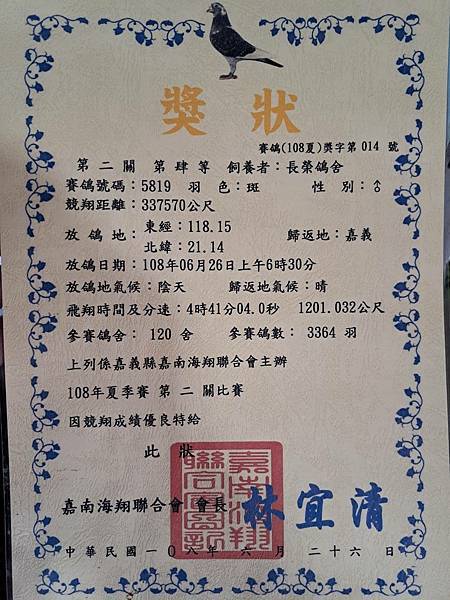 獎狀
賽鴿(108夏)獎字第 014 號
第二關 第肆等 飼養者：長榮鴿舍
賽鴿號碼：5819 羽 色：斑 性 別：♂
競翔距離：337570公尺
放鴿地：東經：118.15 歸返地：嘉義
北緯：21.14
放鴿日期：108年06月26日上午6時30分
放鴿地氣候：陰天 歸返地氣候：晴
飛翔時間及分速：4時41分04.0秒 1201.032公尺
參賽鴿舍： 120 舍 參賽鴿數： 3364 羽
上列係嘉義縣嘉南海翔聯合會主辦
108年夏季賽 第 二 關比賽
因競翔成績優良特給
此 狀
嘉南海翔聯合會 會長 林宜清
中華民國一0八年 六 月 二十六 日